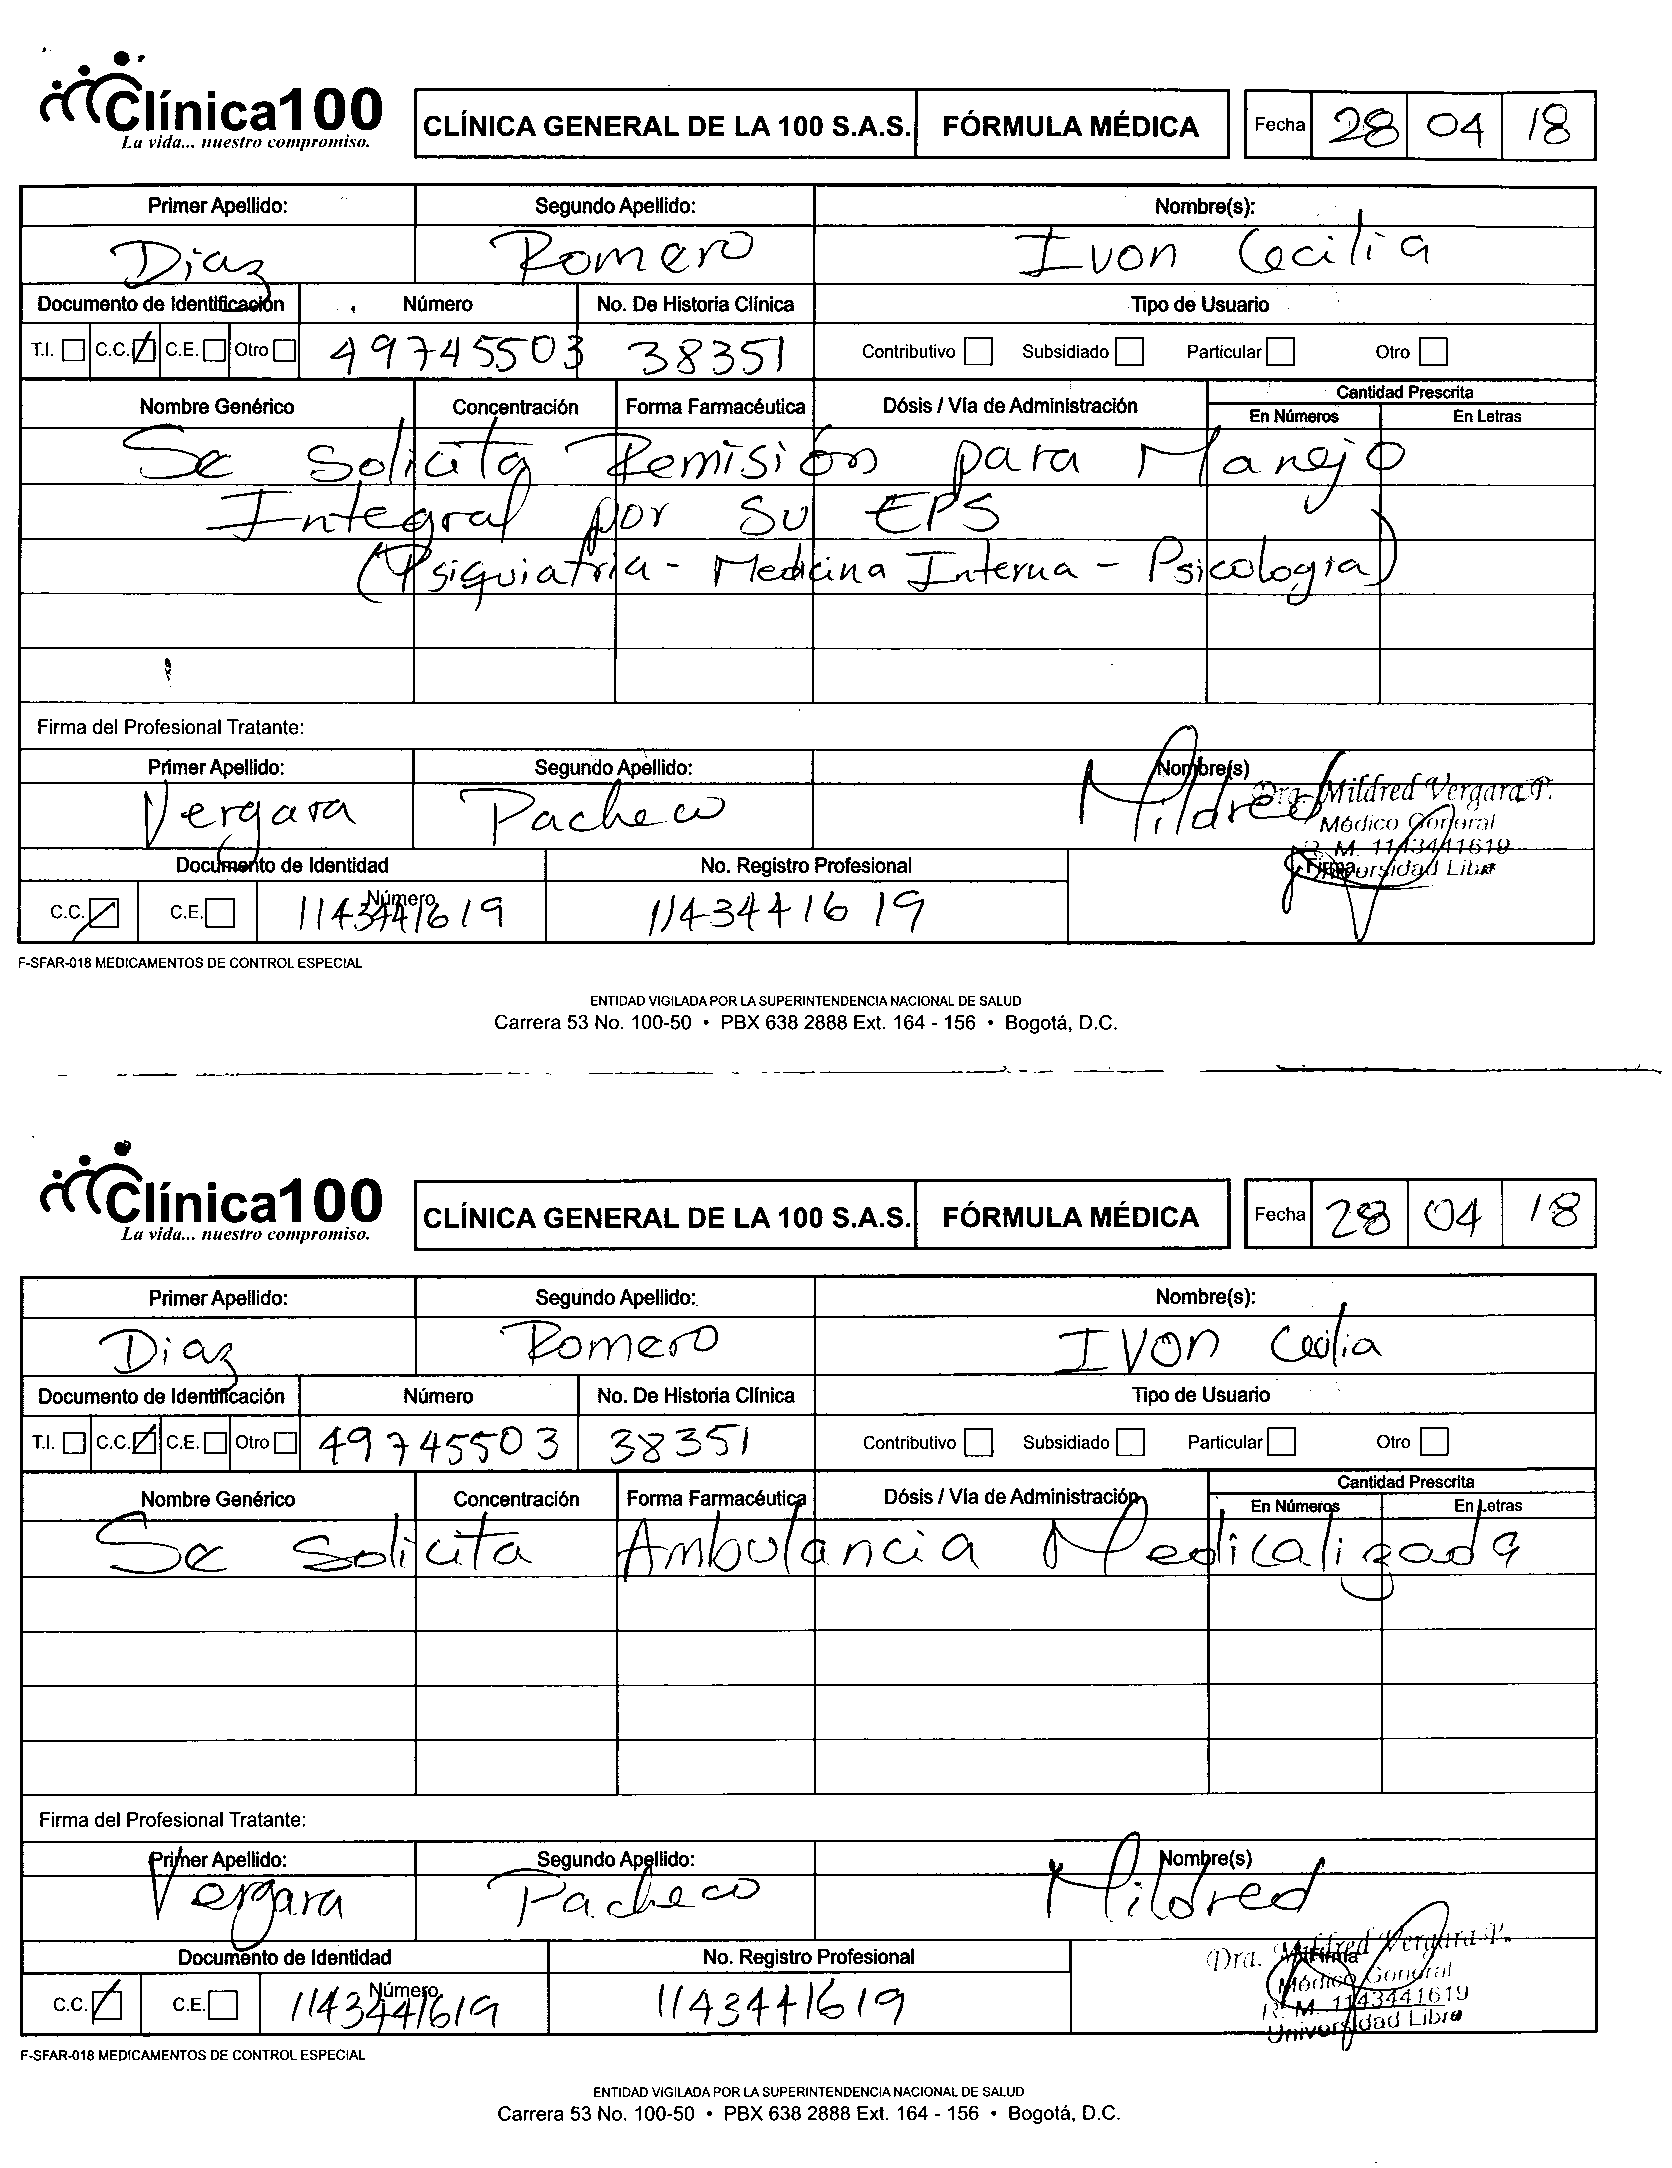 Clínica100
La vida... nuestro compromiso.
CLÍNICA GENERAL DE LA 100 S.A.S. FÓRMULA MÉDICA Fecha 28 04 18
Primer Apellido: Segundo Apellido: Nombre(s):
Diaz Romero Ivon Cecilia
Documento de Identificación Número No. De Historia Clínica Tipo de Usuario
T.I. C.C. C.E. Otro 49745503 38351 Contributivo Subsidiado Particular Otro
Nombre Genérico Concentración Forma Farmacéutica Dósis / Vía de Administración Cantidad Prescrita
En Números En Letras
Se Solicita Remisión para Manejo
Integral por su EPS
(Psiquiatria - Medicina Interna - Psicologia)
Firma del Profesional Tratante:
Primer Apellido: Segundo Apellido: Nombre(s)
Vergara Pacheco Mildred
Dra. Mildred Vergara P.
Médico General
R. M. 1143441619
Universidad Libre
Documento de Identidad No. Registro Profesional Firma
C.C. C.E. Número 1143441619 1143441619
F-SFAR-018 MEDICAMENTOS DE CONTROL ESPECIAL
ENTIDAD VIGILADA POR LA SUPERINTENDENCIA NACIONAL DE SALUD
Carrera 53 No. 100-50 • PBX 638 2888 Ext. 164 - 156 • Bogotá, D.C.
Clínica100
La vida... nuestro compromiso.
CLÍNICA GENERAL DE LA 100 S.A.S. FÓRMULA MÉDICA Fecha 28 04 18
Primer Apellido: Segundo Apellido: Nombre(s):
Diaz Romero IVON Cecilia
Documento de Identificación Número No. De Historia Clínica Tipo de Usuario
T.I. C.C. C.E. Otro 49745503 38351 Contributivo Subsidiado Particular Otro
Nombre Genérico Concentración Forma Farmacéutica Dósis / Vía de Administración Cantidad Prescrita
En Números En Letras
Se Solicita Ambulancia Medicalizada
Firma del Profesional Tratante:
Primer Apellido: Segundo Apellido: Nombre(s)
Vergara Pacheco Mildred
Documento de Identidad No. Registro Profesional Firma
Dra. Mildred Vergara P.
Médico General
R. M. 1143441619
Universidad Libre
C.C. C.E. Número 1143441619 1143441619
F-SFAR-018 MEDICAMENTOS DE CONTROL ESPECIAL
ENTIDAD VIGILADA POR LA SUPERINTENDENCIA NACIONAL DE SALUD
Carrera 53 No. 100-50 • PBX 638 2888 Ext. 164 - 156 • Bogotá, D.C.